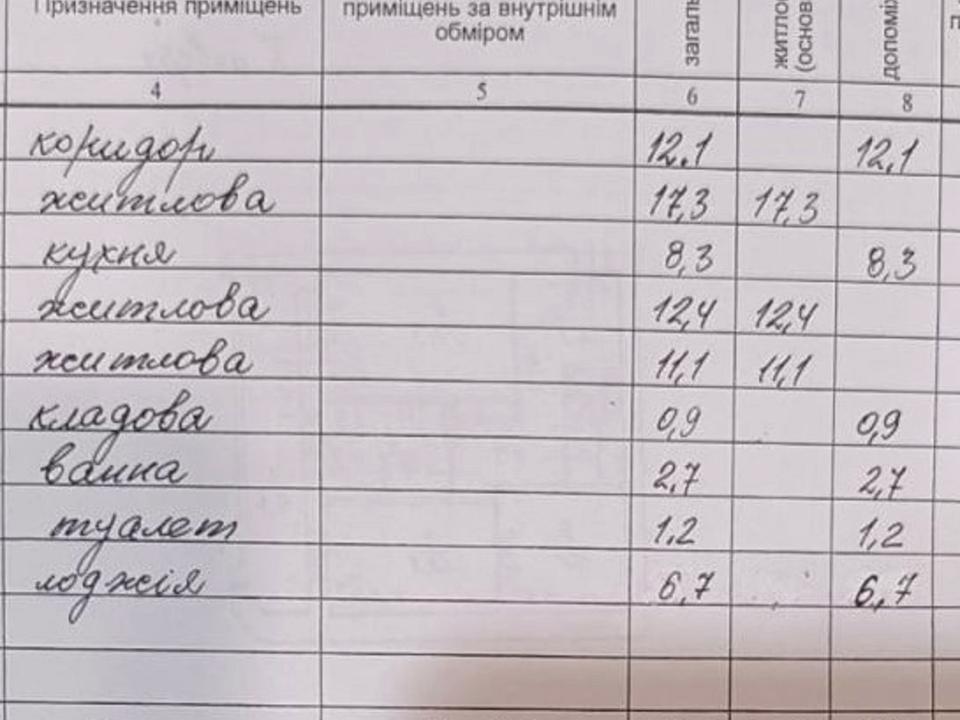 Призначення приміщень
приміщень за внутрішнім
обміром
загаль
житло
(основ
допоміж
п
4 5 6 7 8
коридор 12.1 12,1
житлова 17,3 17,3
кухня 8,3 8,3
житлова 12,4 12,4
житлова 11,1 11,1
кладова 0,9 0,9
ванна 2,7 2,7
туалет 1,2 1,2
лоджія 6,7 6,7